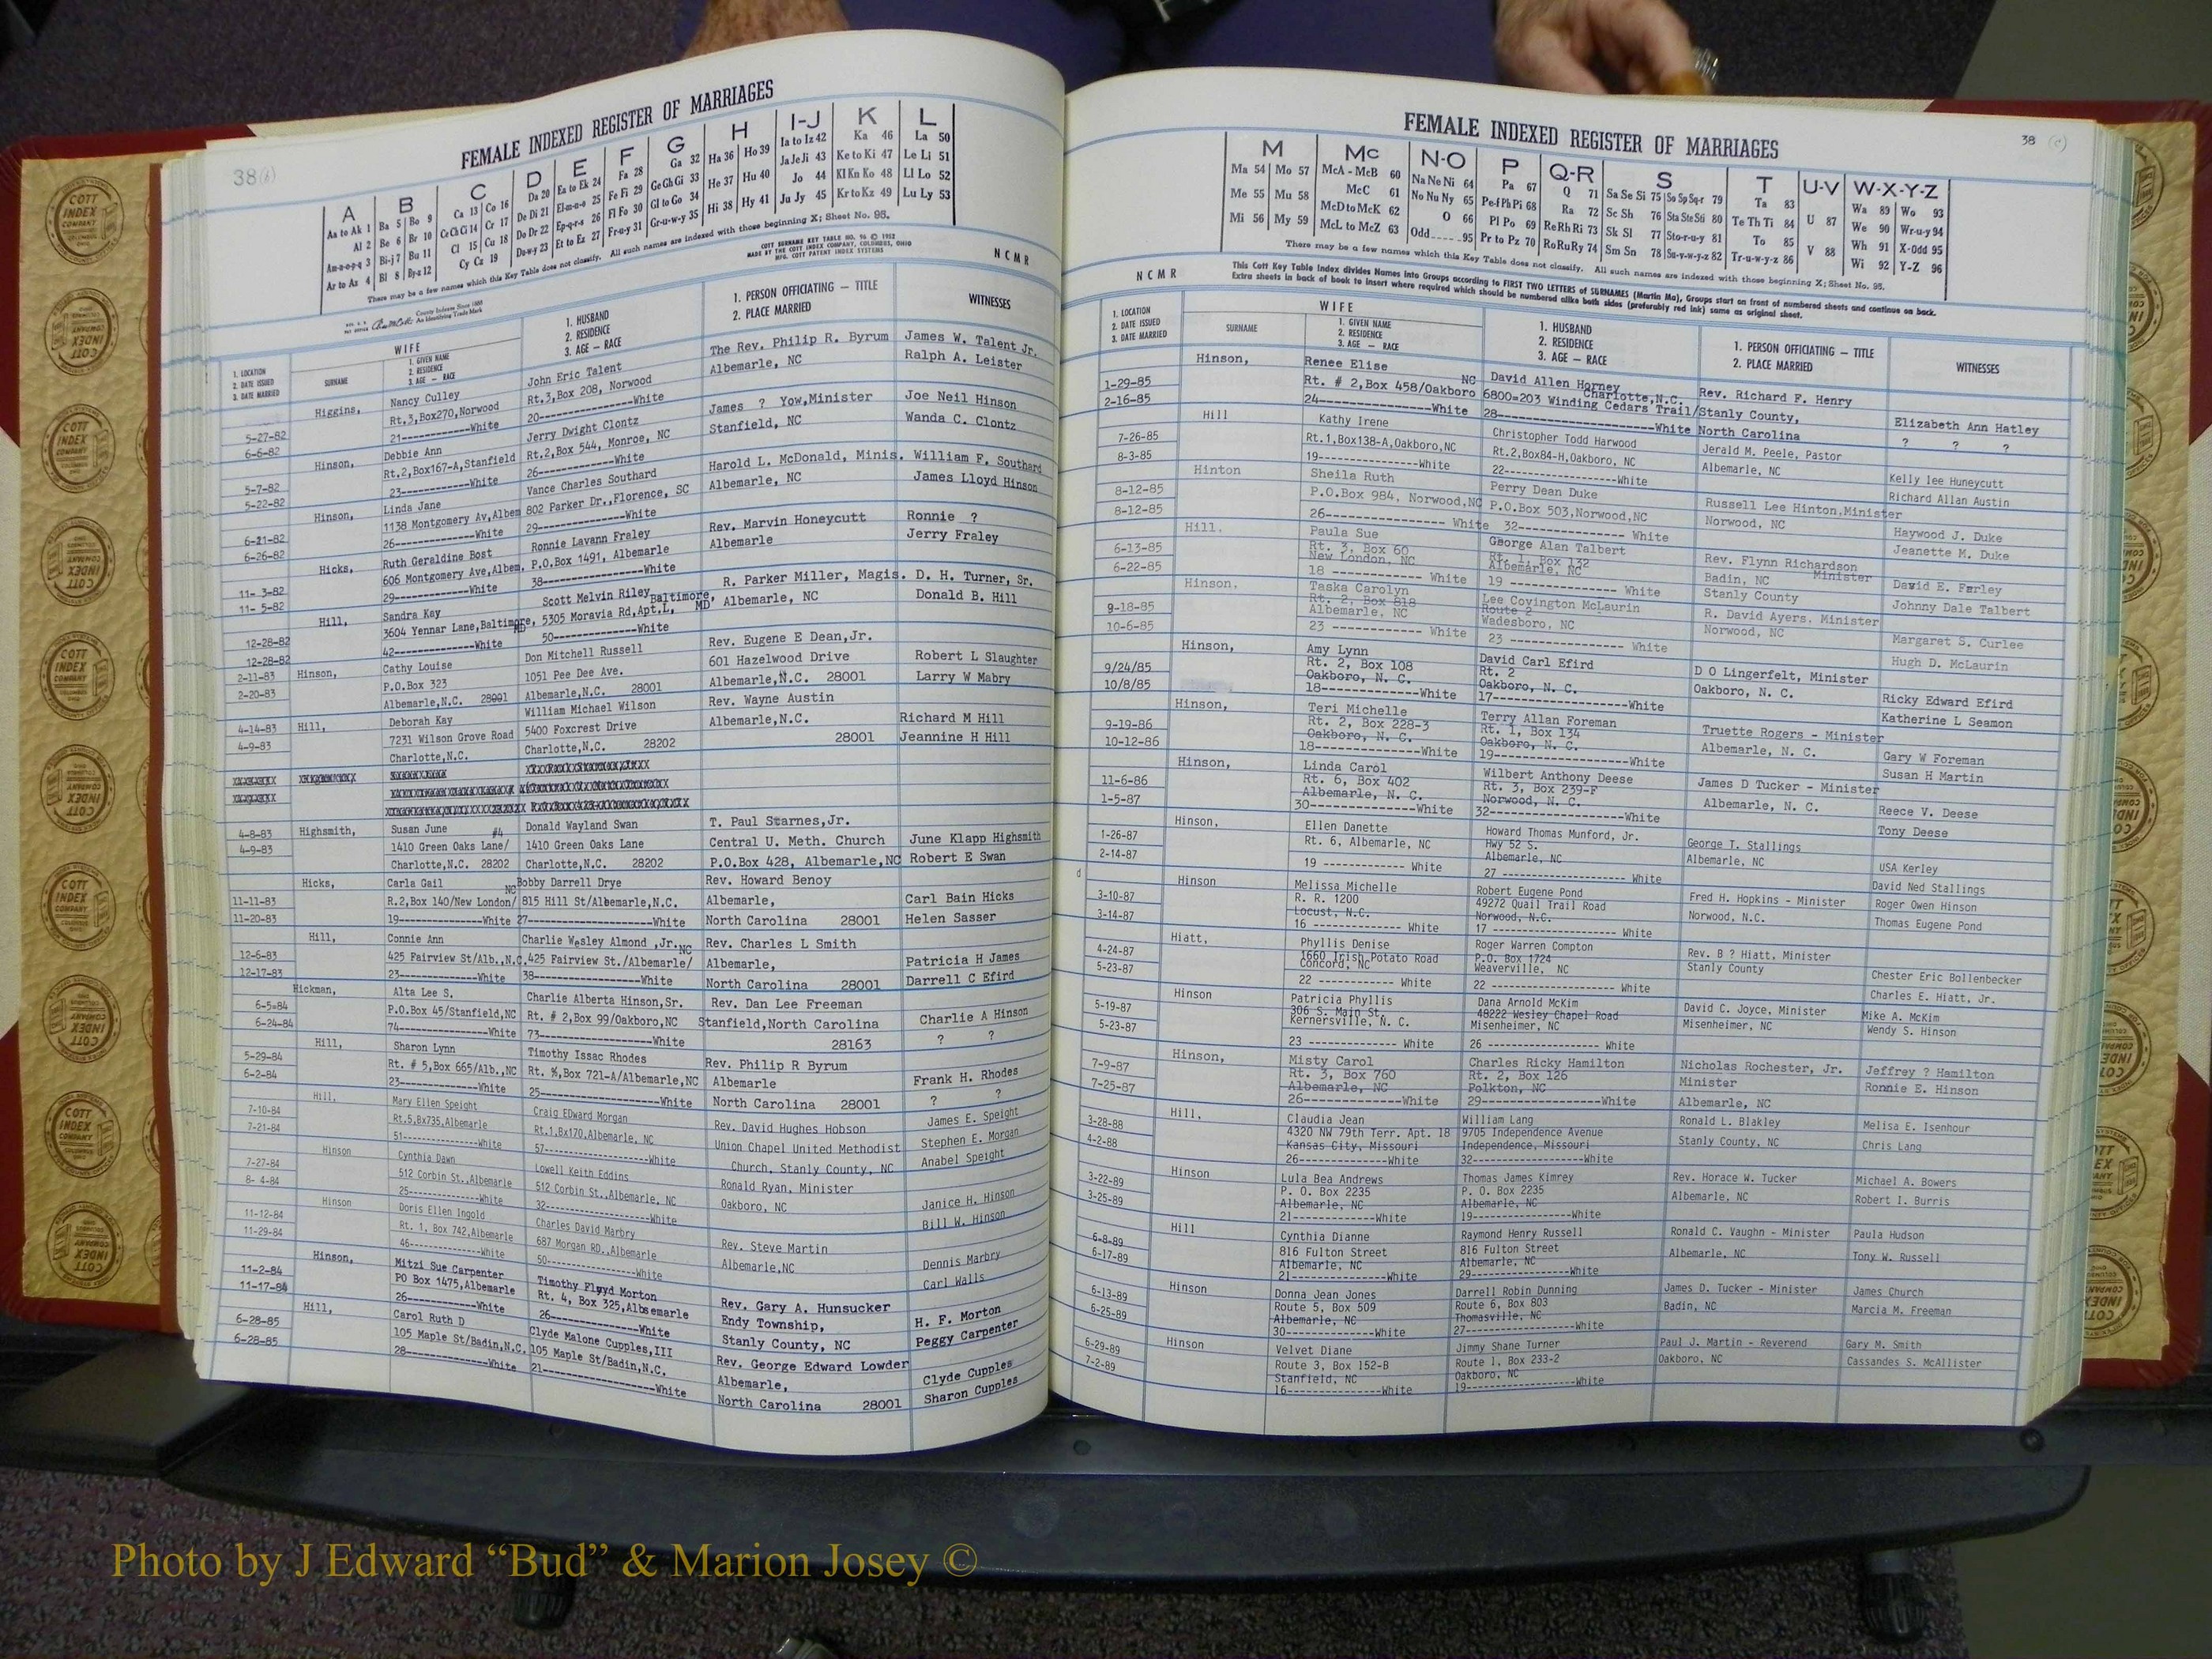 38(b)
FEMALE INDEXED REGISTER OF MARRIAGES
A B C D E F G H I-J K L
Aa to Ak 1 Ba 5 Bo 9 Ca 13 Co 16 Da 20 Ea to Ek 24 Fa 28 Ga 32 Ha 36 Ho 39 Ia to Iz 42 Ka 46 La 50
Al 2 Be 6 Br 10 Ce Ch Ci 14 Cr 17 De Di 21 El-m-n-o 25 Fe Fi 29 Ge Gh Gi 33 He 37 Hu 40 Ja Je Ji 43 Ke to Ki 47 Le Li 51
Am-n-o-p-q 3 Bi-j 7 Bu 11 Cl 15 Cu 18 Do Dr 22 Ep-q-r-s 26 Fl Fo 30 Gl to Go 34 Hi 38 Hy 41 Jo 44 Kl Kn Ko 48 Ll Lo 52
Ar to Az 4 Bl 8 By-z 12 Cy Cz 19 Du-w-y 23 Et to Ez 27 Fr-u-y 31 Gr-u-w-y 35 Ju Jy 45 Kr to Kz 49 Lu Ly 53
There may be a few names which this Key Table does not classify. All such names are indexed with those beginning X; Sheet No. 95.
COTT SURNAME KEY TABLE NO. 96 © 1952
MADE BY THE COTT INDEX COMPANY, COLUMBUS, OHIO
MFG. COTT PATENT INDEX SYSTEMS
County Indexes Since 1888
An Identifying Trade Mark
NCMR
1. LOCATION
2. DATE ISSUED
3. DATE MARRIED
WIFE
SURNAME
1. GIVEN NAME
2. RESIDENCE
3. AGE — RACE
1. HUSBAND
2. RESIDENCE
3. AGE — RACE
1. PERSON OFFICIATING — TITLE
2. PLACE MARRIED
WITNESSES
Higgins, Nancy Culley John Eric Talent The Rev. Philip R. Byrum James W. Talent Jr.
5-27-82 Rt.3,Box270,Norwood Rt.3,Box 208, Norwood Albemarle, NC Ralph A. Leister
6-6-82 21------------White 20----------------White
Hinson, Debbie Ann Jerry Dwight Clontz James ? Yow,Minister Joe Neil Hinson
5-7-82 Rt.2,Box167-A,Stanfield Rt.2,Box 544, Monroe, NC Stanfield, NC Wanda C. Clontz
5-22-82 23------------White 26------------White
Hinson, Linda Jane Vance Charles Southard Harold L. McDonald, Minis. William F. Southard
6-21-82 1138 Montgomery Av,Albem 802 Parker Dr.,Florence, SC Albemarle, NC James Lloyd Hinson
6-26-82 26------------White 29--------------White
Hicks, Ruth Geraldine Bost Ronnie Lavann Fraley Rev. Marvin Honeycutt Ronnie ?
11- 3-82 606 Montgomery Ave,Albem. P.O.Box 1491, Albemarle Albemarle Jerry Fraley
11- 5-82 29------------White 38----------------White
Hill, Sandra Kay Scott Melvin Riley R. Parker Miller, Magis. D. H. Turner, Sr.
12-28-82 3604 Yennar Lane,Baltimore, MD 5305 Moravia Rd,Apt.L, Baltimore, MD Albemarle, NC Donald B. Hill
12-28-82 42------------White 50-------------White
2-11-83 Hinson, Cathy Louise Don Mitchell Russell Rev. Eugene E Dean,Jr.
2-20-83 P.O.Box 323 1051 Pee Dee Ave. 601 Hazelwood Drive Robert L Slaughter
Albemarle,N.C. 28001 Albemarle,N.C. 28001 Albemarle,N.C. 28001 Larry W Mabry
4-14-83 Hill, Deborah Kay William Michael Wilson Rev. Wayne Austin
4-9-83 7231 Wilson Grove Road 5400 Foxcrest Drive Albemarle,N.C. Richard M Hill
Charlotte,N.C. Charlotte,N.C. 28202 28001 Jeannine H Hill
4-8-83 Highsmith, Susan June #4 Donald Wayland Swan T. Paul Starnes,Jr.
4-9-83 1410 Green Oaks Lane/ 1410 Green Oaks Lane Central U. Meth. Church June Klapp Highsmith
Charlotte,N.C. 28202 Charlotte,N.C. 28202 P.O.Box 428, Albemarle,NC Robert E Swan
Hicks, Carla Gail Bobby Darrell Drye Rev. Howard Benoy
11-11-83 R.2,Box 140/New London/NC 815 Hill St/Albemarle,N.C. Albemarle, Carl Bain Hicks
11-20-83 19----------------White 27------------------White North Carolina 28001 Helen Sasser
Hill, Connie Ann Charlie Wesley Almond ,Jr. Rev. Charles L Smith
12-6-83 425 Fairview St/Alb.,N.C. 425 Fairview St./Albemarle/NC Albemarle, Patricia H James
12-17-83 23---------------White 38----------------White North Carolina 28001 Darrell C Efird
Hickman, Alta Lee S. Charlie Alberta Hinson,Sr. Rev. Dan Lee Freeman
6-5-84 P.O.Box 45/Stanfield,NC Rt. # 2,Box 99/Oakboro,NC Stanfield,North Carolina Charlie A Hinson
6-24-84 74----------------White 73-----------------White 28163 ? ?
Hill, Sharon Lynn Timothy Issac Rhodes Rev. Philip R Byrum
5-29-84 Rt. # 5,Box 665/Alb.,NC Rt. %,Box 721-A/Albemarle,NC Albemarle Frank H. Rhodes
6-2-84 23---------------White 25------------------White North Carolina 28001 ? ?
Hill, Mary Ellen Speight Craig EDward Morgan Rev. David Hughes Hobson James E. Speight
7-10-84 Rt.5,Bx735,Albemarle Rt.1,Bx170,Albemarle, NC Union Chapel United Methodist Stephen E. Morgan
7-21-84 51---------------White 57-----------------White Church, Stanly County, NC Anabel Speight
Hinson Cynthia Dawn Lowell Keith Eddins Ronald Ryan, Minister
7-27-84 512 Corbin St.,Albemarle 512 Corbin St.,Albemarle, NC Oakboro, NC Janice H. Hinson
8- 4-84 25--------------White 32----------------White Bill W. Hinson
Hinson Doris Ellen Ingold Charles David Marbry Rev. Steve Martin
11-12-84 Rt. 1, Box 742,Albemarle 687 Morgan RD.,Albemarle Albemarle,NC Dennis Marbry
11-29-84 46--------------White 50-------------White Carl Walls
Hinson, Mitzi Sue Carpenter Timothy Floyd Morton Rev. Gary A. Hunsucker
11-2-84 PO Box 1475,Albemarle Rt. 4, Box 325,Albemarle Endy Township, H. F. Morton
11-17-84 26------------White 26---------------White Stanly County, NC Peggy Carpenter
Hill, Carol Ruth D Clyde Malone Cupples,III Rev. George Edward Lowder
6-28-85 105 Maple St/Badin,N.C. 105 Maple St/Badin,N.C. Albemarle, Clyde Cupples
6-28-85 28----------------White 21-----------------White North Carolina 28001 Sharon Cupples
38 (c)
FEMALE INDEXED REGISTER OF MARRIAGES
M Mc N-O P Q-R S T U-V W-X-Y-Z
Ma 54 Mo 57 McA - McB 60 Na Ne Ni 64 Pa 67 Q 71 Sa Se Si 75 So Sp Sq-r 79 Ta 83 Wa 89 Wo 93
Me 55 Mu 58 McC 61 No Nu Ny 65 Pe-f Ph Pi 68 Ra 72 Sc Sh 76 Sta Ste Sti 80 Te Th Ti 84 U 87 We 90 Wr-u-y 94
Mi 56 My 59 McD to McK 62 O 66 Pl Po 69 Re Rh Ri 73 Sk Sl 77 Sto-r-u-y 81 To 85 Wh 91 X-Odd 95
McL to McZ 63 Odd 95 Pr to Pz 70 Ro Ru Ry 74 Sm Sn 78 Su-v-w-y-z 82 Tr-u-w-y-z 86 V 88 Wi 92 Y-Z 96
There may be a few names which this Key Table does not classify. All such names are indexed with those beginning X; Sheet No. 95.
This Cott Key Table Index divides Names into Groups according to FIRST TWO LETTERS of SURNAMES (Martin Ma), Groups start on front of numbered sheets and continue on back.
Extra sheets in back of book to insert where required which should be numbered alike both sides (preferably red ink) same as original sheet.
NCMR
1. LOCATION
2. DATE ISSUED
3. DATE MARRIED
WIFE
SURNAME
1. GIVEN NAME
2. RESIDENCE
3. AGE — RACE
1. HUSBAND
2. RESIDENCE
3. AGE — RACE
1. PERSON OFFICIATING — TITLE
2. PLACE MARRIED
WITNESSES
Hinson, Renee Elise David Allen Horney Rev. Richard F. Henry
1-29-85 Rt. # 2,Box 458/Oakboro NC 6800=203 Winding Cedars Trail/Charlotte,N.C. Stanly County, Elizabeth Ann Hatley
2-16-85 24----------------White 28------------------White North Carolina ? ? ?
Hill Kathy Irene Christopher Todd Harwood Jerald M. Peele, Pastor
7-26-85 Rt.1,Box138-A,Oakboro,NC Rt.2,Box84-H,Oakboro, NC Albemarle, NC Kelly lee Huneycutt
8-3-85 19---------------White 22----------------White Richard Allan Austin
Hinton Sheila Ruth Perry Dean Duke Russell Lee Hinton,Minister
8-12-85 P.O.Box 984, Norwood,NC P.O.Box 503,Norwood,NC Norwood, NC Haywood J. Duke
8-12-85 26---------------- White 32------------ White Jeanette M. Duke
Hill, Paula Sue George Alan Talbert Rev. Flynn Richardson
6-13-85 Rt. 3, Box 60 Rt. 1, Box 132 Badin, NC Minister David E. Farley
New London, NC Albemarle, NC Stanly County
6-22-85 18 ---------- White 19 ----------- White Johnny Dale Talbert
Hinson, Taska Carolyn Lee Covington McLaurin R. David Ayers, Minister
9-18-85 Rt. 2, Box 818 Route 2 Norwood, NC Margaret S. Curlee
10-6-85 Albemarle, NC Wadesboro, NC Hugh D. McLaurin
23 ------------ White 23 ----------- White
Hinson, Amy Lynn David Carl Efird D O Lingerfelt, Minister
9/24/85 Rt. 2, Box 108 Rt. 2 Oakboro, N. C. Ricky Edward Efird
10/8/85 Oakboro, N. C. Oakboro, N. C. Katherine L Seamon
18-------------White 17--------------White
Hinson, Teri Michelle Terry Allan Foreman Truette Rogers - Minister
9-19-86 Rt. 2, Box 228-3 Rt. 1, Box 134 Albemarle, N. C. Gary W Foreman
10-12-86 Oakboro, N. C. Oakboro, N. C. Susan H Martin
18---------------White 19---------------White
Hinson, Linda Carol Wilbert Anthony Deese James D Tucker - Minister
11-6-86 Rt. 6, Box 402 Rt. 3, Box 239-F Albemarle, N. C. Reece V. Deese
1-5-87 Albemarle, N. C. Norwood, N. C. Tony Deese
30---------------White 32---------------White
Hinson, Ellen Danette Howard Thomas Munford, Jr. George T. Stallings
1-26-87 Rt. 6, Albemarle, NC Hwy 52 S. Albemarle, NC USA Kerley
2-14-87 19 ------------ White Albemarle, NC David Ned Stallings
27 -------------- White
Hinson Melissa Michelle Robert Eugene Pond Fred H. Hopkins - Minister Roger Owen Hinson
3-10-87 R. R. 1200 49272 Quail Trail Road Norwood, N.C. Thomas Eugene Pond
3-14-87 Locust, N.C. Norwood, N.C.
16 ------------ White 17 -------------- White
Hiatt, Phyllis Denise Roger Warren Compton Rev. B ? Hiatt, Minister
4-24-87 1660 Irish Potato Road P.O. Box 1724 Stanly County Chester Eric Bollenbecker
5-23-87 Concord, NC Weaverville, NC Charles E. Hiatt, Jr.
22 ----------- White 22 -------------- White
Hinson Patricia Phyllis Dana Arnold McKim David C. Joyce, Minister Mike A. McKim
5-19-87 306 S. Main St. 48222 Wesley Chapel Road Misenheimer, NC Wendy S. Hinson
5-23-87 Kernersville, N. C. Misenheimer, NC
23 ------------- White 26 -------------- White
Hinson, Misty Carol Charles Ricky Hamilton Nicholas Rochester, Jr. Jeffrey ? Hamilton
7-9-87 Rt. 3, Box 760 Rt. 2, Box 126 Minister Ronnie E. Hinson
7-25-87 Albemarle, NC Polkton, NC Albemarle, NC
26-------------White 29--------------White
Hill, Claudia Jean William Lang Ronald L. Blakley Melisa E. Isenhour
3-28-88 4320 NW 79th Terr. Apt. 18 9705 Independence Avenue Stanly County, NC Chris Lang
4-2-88 Kansas City, Missouri Independence, Missouri
26-------------White 32---------------White
Hinson Lula Bea Andrews Thomas James Kimrey Rev. Horace W. Tucker Michael A. Bowers
3-22-89 P. O. Box 2235 P. O. Box 2235 Albemarle, NC Robert I. Burris
3-25-89 Albemarle, NC Albemarle, NC
21------------White 19---------------White
Hill Cynthia Dianne Raymond Henry Russell Ronald C. Vaughn - Minister Paula Hudson
6-8-89 816 Fulton Street 816 Fulton Street Albemarle, NC Tony W. Russell
6-17-89 Albemarle, NC Albemarle, NC
21---------------White 29---------------White
Hinson Donna Jean Jones Darrell Robin Dunning James D. Tucker - Minister James Church
6-13-89 Route 5, Box 509 Route 6, Box 803 Badin, NC Marcia M. Freeman
6-25-89 Albemarle, NC Thomasville, NC
30-------------White 27---------------White
Hinson Velvet Diane Jimmy Shane Turner Paul J. Martin - Reverend Gary M. Smith
6-29-89 Route 3, Box 152-B Route 1, Box 233-2 Oakboro, NC Cassandes S. McAllister
7-2-89 Stanfield, NC Oakboro, NC
16--------------White 19---------------White
COTT
INDEX
COMPANY
Photo by J Edward “Bud” & Marion Josey ©